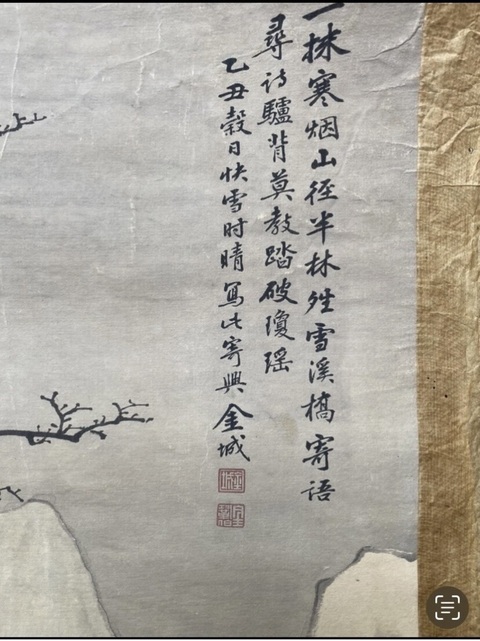 一抹寒烟山径半林残雪溪橋寄语
尋诗驢背莫教踏破瓊瑶
乙丑穀日快雪时晴寫此寄興金城